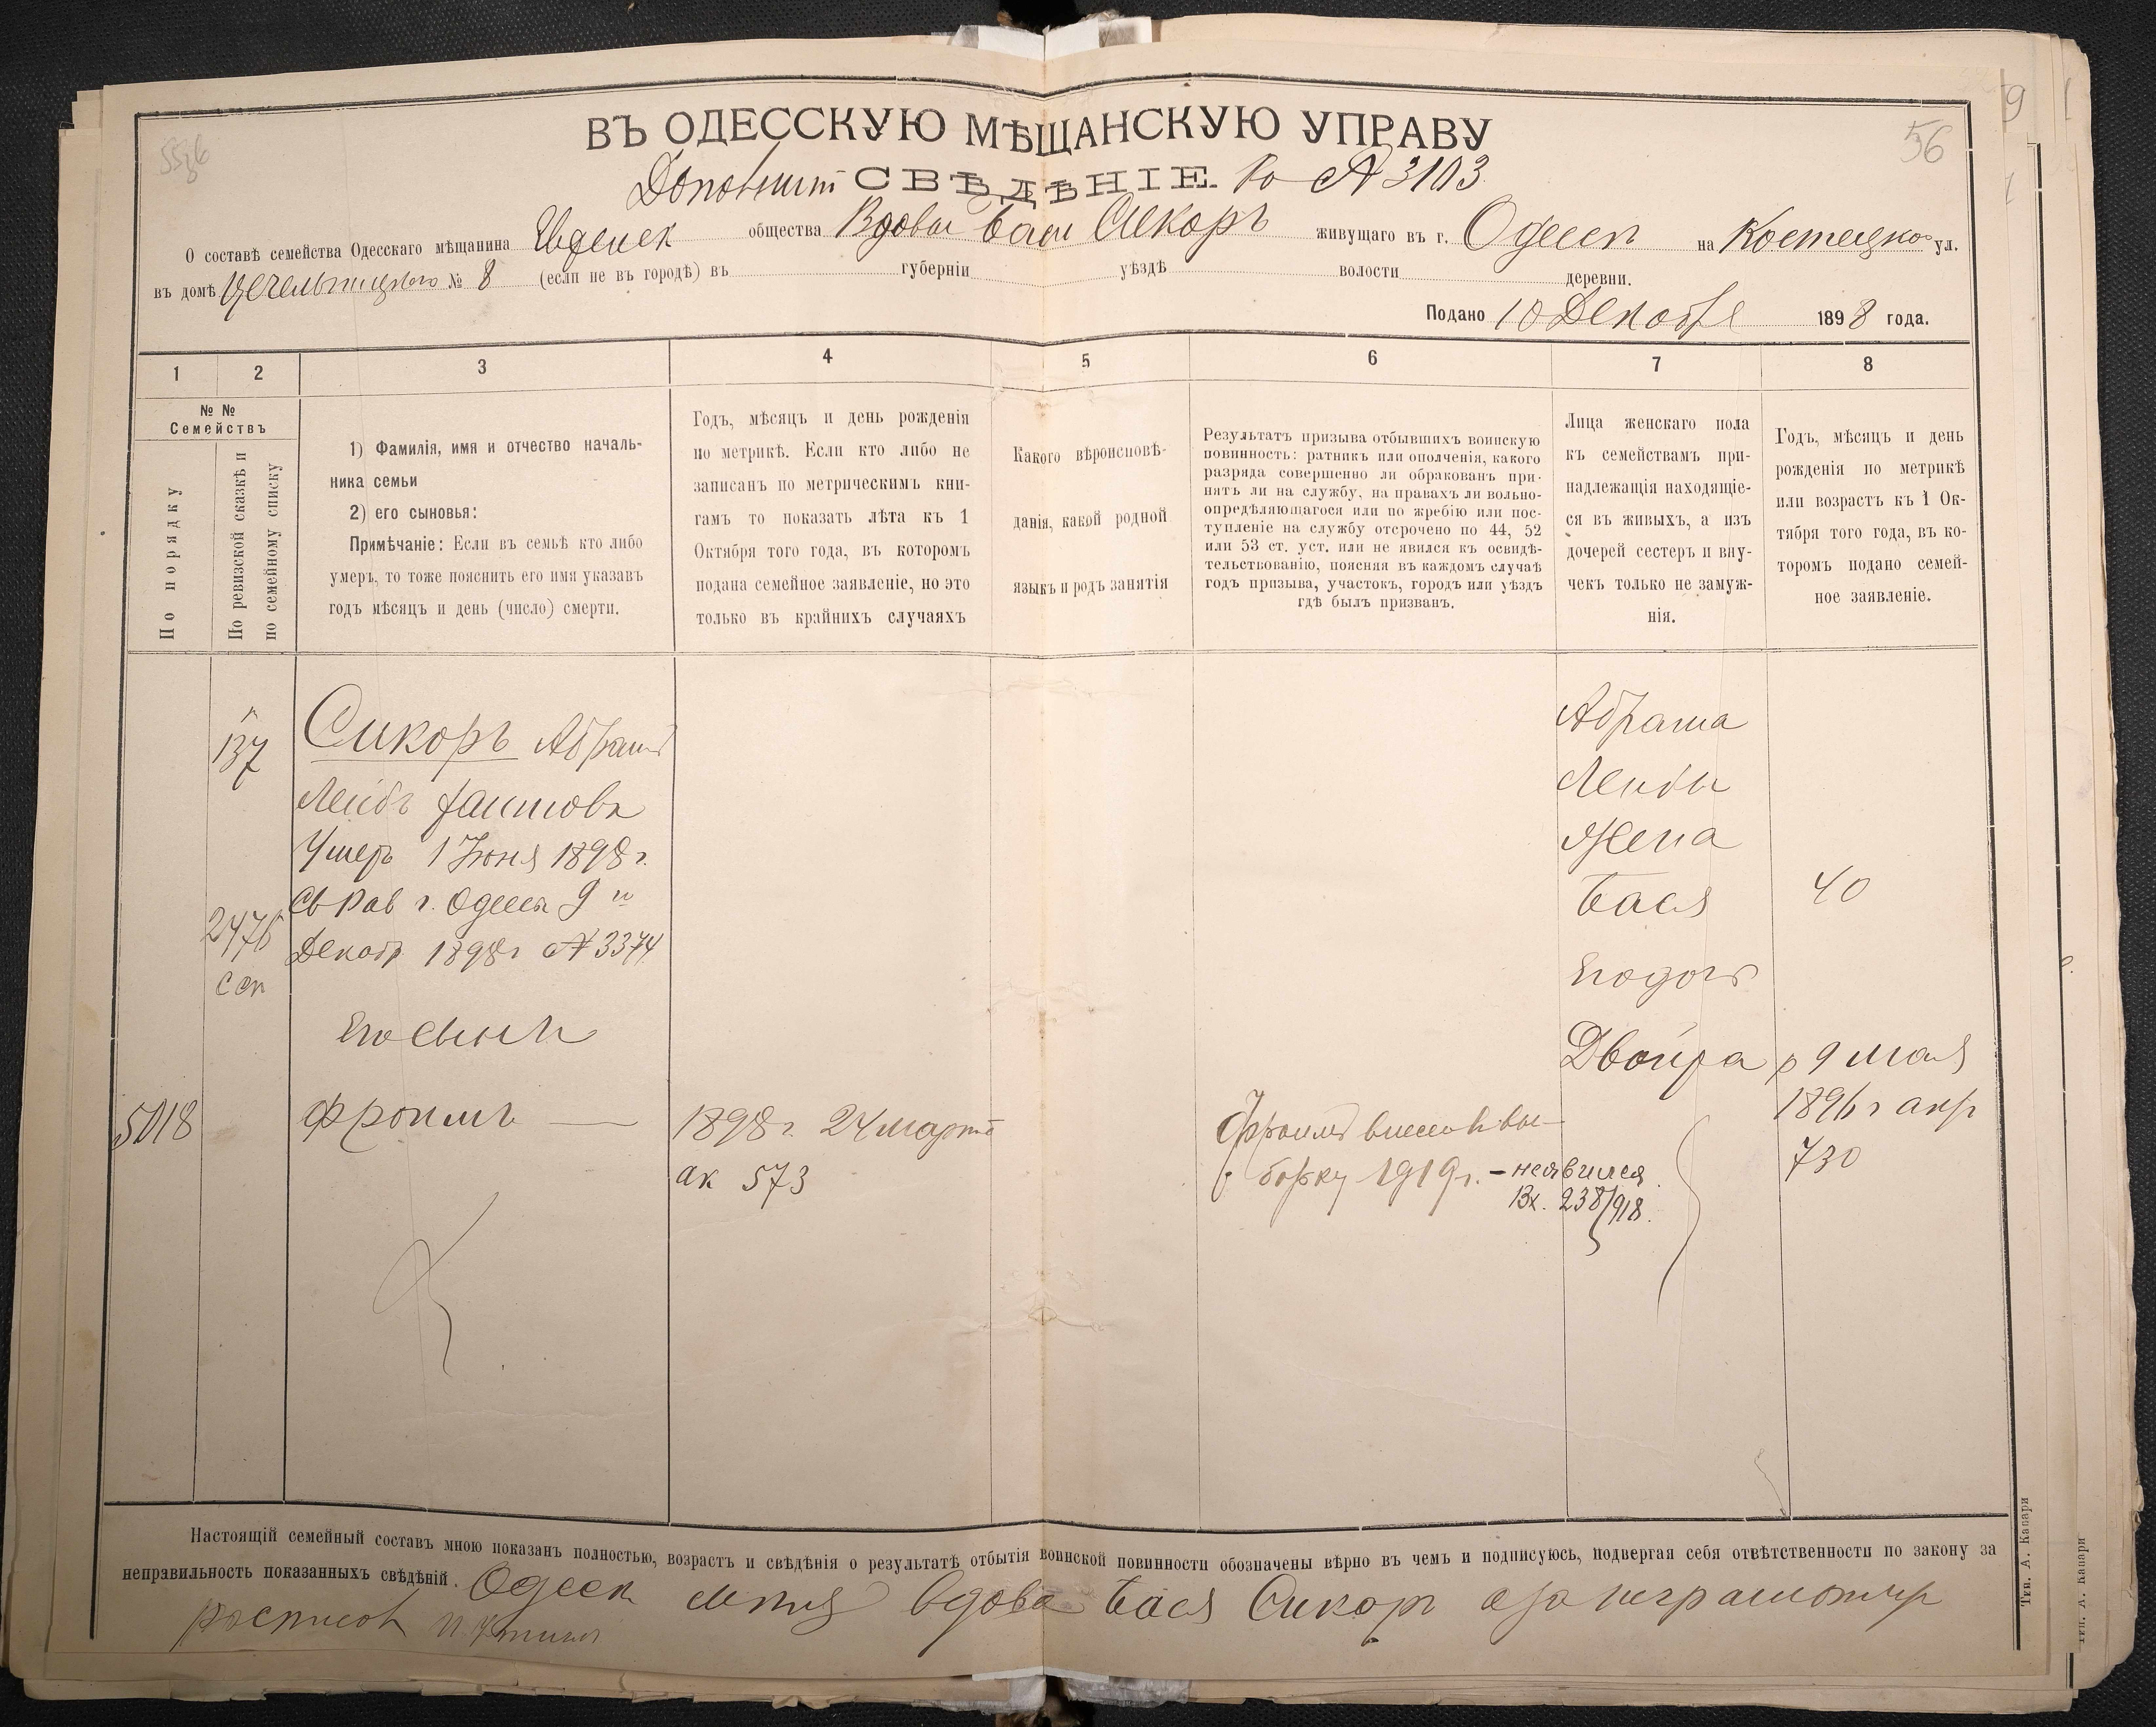 5536
56
ВЪ ОДЕССКУЮ МѢЩАНСКУЮ УПРАВУ
СВѢДѢНІЕ. № 3103
О составѣ семейства Одесскаго мѣщанина общества Вдовы Баси Сикоръ живущаго въ г. Одессѣ на Костецкой ул.
въ домѣ № 8 (если не въ городѣ) въ губерніи уѣздѣ волости деревни.
Подано 10 Декабря 1898 года.
1 2 3 4 5 6 7 8
№ №
Семействъ
По порядку
По ревизской сказкѣ и
по семейному списку
1) Фамилія, имя и отчество началь-
ника семьи
2) его сыновья:
Примѣчаніе: Если въ семьѣ кто либо
умеръ, то тоже пояснить его имя указавъ
годъ мѣсяцъ и день (число) смерти.
Годъ, мѣсяцъ и день рожденія
по метрикѣ. Если кто либо не
записанъ по метрическимъ кни-
гамъ то показать лѣта къ 1
Октября того года, въ которомъ
подана семейное заявленіе, но это
только въ крайнихъ случаяхъ
Какого вѣроисповѣ-
данія, какой родной
языкъ и родъ занятія
Результатъ призыва отбывшихъ воинскую
повинность: ратникъ или ополченія, какого
разряда совершенно ли обракованъ при-
нятъ ли на службу, на правахъ ли вольно-
опредѣляющагося или по жребію или пос-
тупленіе на службу отсрочено по 44, 52
или 53 ст. уст. или не явился къ освидѣ-
тельствованію, поясняя въ каждомъ случаѣ
годъ призыва, участокъ, городъ или уѣздъ
гдѣ былъ призванъ.
Лица женскаго пола
къ семействамъ при-
надлежащія находящіе-
ся въ живыхъ, а изъ
дочерей сестеръ и вну-
чекъ только не замуж-
нія.
Годъ, мѣсяцъ и день
рожденія по метрикѣ
или возрастъ къ 1 Ок-
тября того года, въ ко-
торомъ подано семей-
ное заявленіе.
137
Сикоръ Абрамъ
Лейбъ
Умеръ 1 Іюня 1898 г.
Св Рав г. Одессы 9 го
Декабр 1898 г № 3374
2476
Его сынъ
5018 Фроимъ —
1898 г. 24 марта
ак 573
Фроимъ внесен въ вы-
борку 1919 г. – неявился
Вх. 238/918.
Абрама
Лейбы
Жена
Бася 40
Его дочь
Двойра р 9 мая
1896 г акр
730
Настоящій семейный составъ мною показанъ полностью, возрастъ и свѣдѣнія о результатѣ отбытія воинской повинности обозначены вѣрно въ чемъ и подписуюсь, подвергая себя отвѣтственности по закону за
неправильность показанныхъ свѣдѣній. Одесск мѣщ вдова Бася Сикоръ а за неграмотную
Тип. А. Капари
Тип. А. Капари